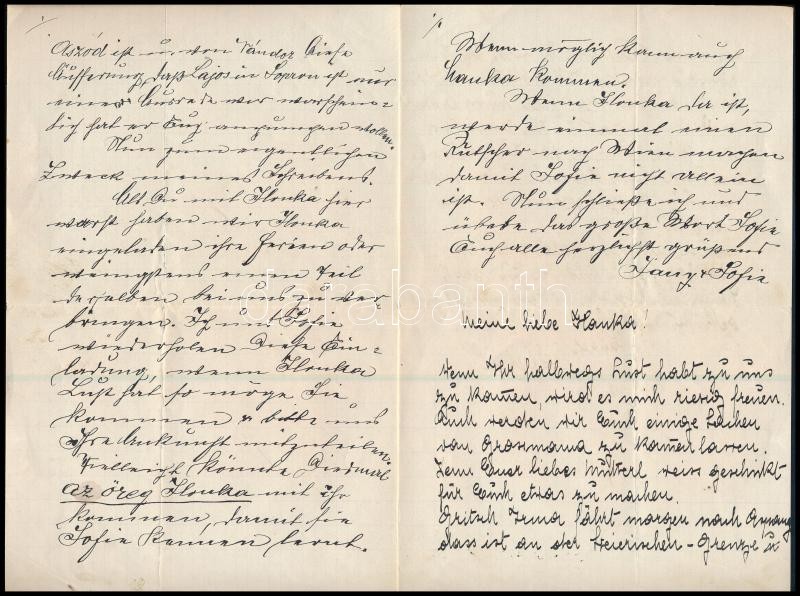 Aszód ist u. von Sándor diese
Äusserung, daß Lajos in Sopron ist nur
eine Ausrede war warschein=
lich hat er Euch anpumpen wollen.
Nun zum eigentlichen
Zweck meines Schreibens.
Als Du mit Ilonka hier
warst haben wir Ilonka
eingeladen ihre Ferien oder
wenigstens einen Teil
derselben bei uns zu ver=
bringen. Ich und Sofie
wiederholen diese Ein=
ladung, wenn Ilonka
Lust hat so möge Sie
kommen u bitte uns
Ihre Ankunft mitzuteilen.
Vielleicht könnte Diesmal
az öreg Ilonka mit ihr
kommen, damit sie
Sofie kennen lernt.
Wenn möglich kann auch
Hanka kommen.
Wenn Ilonka da ist,
werde einmal einen
Rutscher nach Wien machen
damit Sofie nicht allein
ist. Nun schließe ich und
übebe das große Wort Sofie
Euch alle herzlichst grüßend
Sofie
Meine liebe Ilonka!
Wenn Ihr halbwegs Lust habt zu uns
zu kommen, wird es mich riesig freuen.
Auch werden wir Euch einige Sachen
von Grossmama zu kommen lassen.
Denn Euer liebes Mütterl weiss geschickt
für Euch etwas zu machen.
Irma fährt morgen nach Aspang
dass ist an der steierischen - Grenze u
darabanth